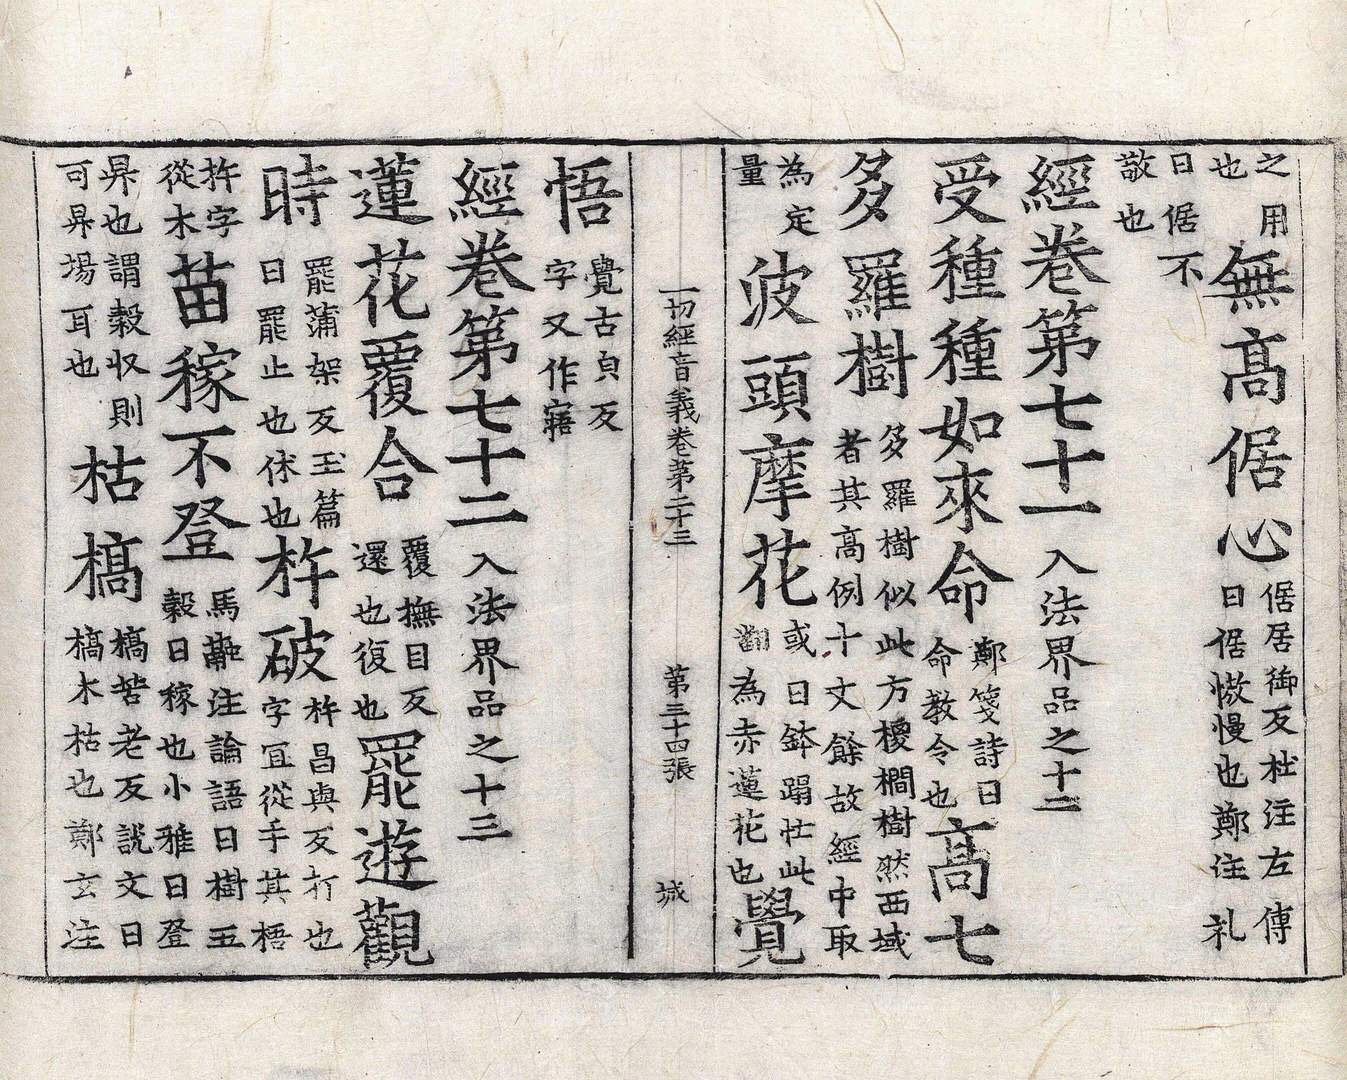 之用
也
無高倨心
倨居御反杜注左傳
曰倨慠慢也鄭注礼
曰倨不
敬也
經卷第七十一 入法界品之十二
受種種如來命
鄭箋詩曰
命教令也
高七
多羅樹
多羅樹似此方椶櫚樹然西域
者其高例十丈餘故經中取
為定
量
波頭摩花
或曰鉢蹋忙此
翻為赤蓮花也
覺
一切經音義卷第二十三 第三十四張 城
悟
覺古皃反
字又作寤
經卷第七十二 入法界品之十三
蓮花覆合
覆撫目反
還也復也
罷遊觀
時
罷蒲架反玉篇
曰罷止也休也
杵破
杵昌與反打也
字冝從手其梧
杵字
從木
苗稼不登
馬融注論語曰樹五
穀曰稼也小雅曰登
昇也謂穀収則
可昇場耳也
枯槁
槁苦老反說文曰
槁木枯也鄭玄注